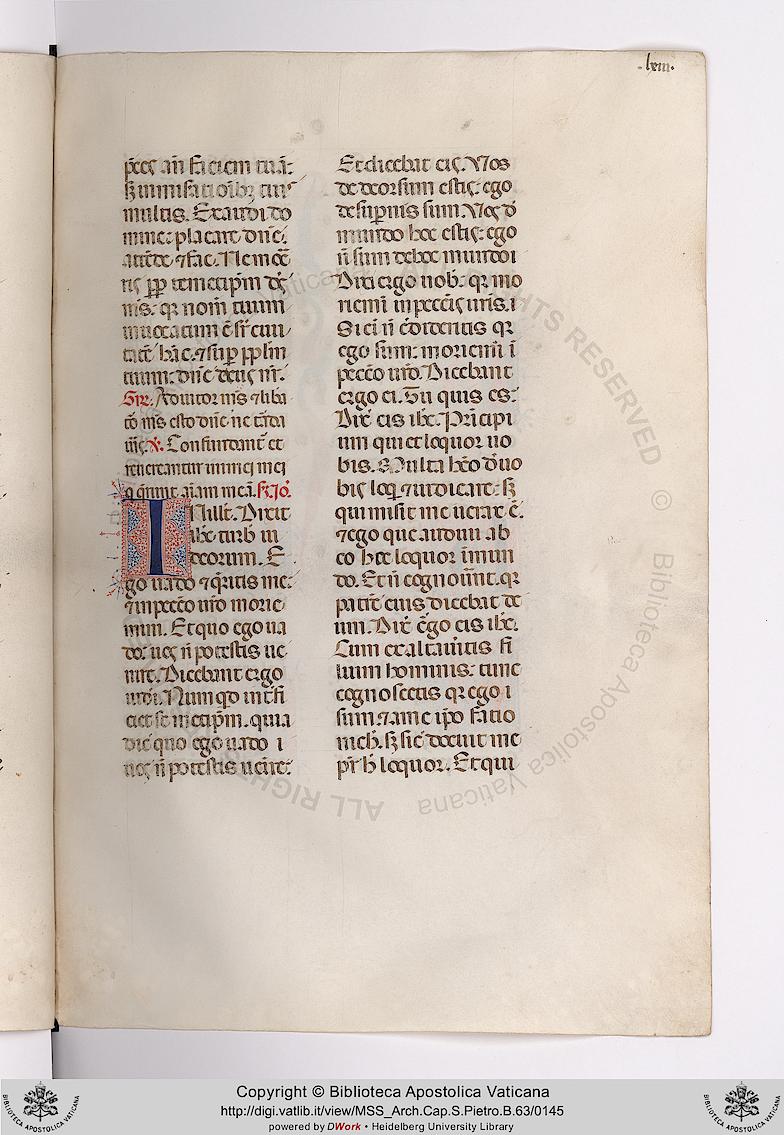 .lxiii.
p̄ces añ faciem tuā:
sʒ in miẜatiōibʒ tuis
multis. Exaudi do
mine: placare dñe:
attēde ⁊ fac. Ne moꝛe
ris ꝓp̄ temetip̄m ds̄
ms̄: qꝛ nom̄ tuum
inuocatum ē sr̄ ciui
tatē hāc. ⁊ suꝑ pp̄lm
tuum. dñe deus nr̄.
Gr̄. Adiutor ms̄ ⁊ liba
tō ms̄ esto dñe ne tāda
uis̄. ℣. Confundant̄ et
reuereantur inimici mei
q q̄runt aīam meā. S. Jo.
In illt̄. Dixit
ihc̄ turb̄ iu
deorum. E
go uado ⁊ q̄ritis me:
⁊ in pecc̄o uro moꝛie
mini. Et quo ego ua
do: uos n̄ potestis ue
nire. Dicebant ergo
iudi. Num qd̄ int̄fi
ciet sē metip̄m. quia
dic̄ quo ego uado i
uos n̄ potestis uēire:
Et dicebat eis. Vos
de deorsum estis: ego
de suꝑnis sum. Vos d̄
mundo hoc estis: ego
n̄ sum de hoc mundo i
Dixi ergo uob̄: qꝛ mo
riemī in pecc̄is uris. i
Si eī n̄ c̄dideritis qꝛ
ego sum: moriemī ī
pecc̄o uro. Dicebant
ergo ei. Tu quis es:
Dix̄ eis ihc̄. Prīcipi
um qui et loquor uo
bis. Multa hēo d̄ uo
bis loq̄ ⁊ iudicare: sʒ
qui misit me uerax ē.
⁊ ego que audiui ab
eo hec loquor ī mun
do. Et n̄ cognoūnt. qꝛ
patrē eius dicebat de
um. Dix̄ ēgo eis ihc̄.
Cum exaltaūitis fi
lium hominis: tunc
cognoscetis qꝛ ego i
sum. ⁊ a me ip̄o facio
nich̄. sʒ sic̄ docuit me
pr̄ h̄ loquor. Et qui
Copyright © Biblioteca Apostolica Vaticana
http://digi.vatlib.it/view/MSS_Arch.Cap.S.Pietro.B.63/0145
powered by DWork • Heidelberg University Library
BIBLIOTECA APOSTOLICA VATICANA
BIBLIOTECA APOSTOLICA VATICANA
ALL RIGHTS RESERVED © Biblioteca Apostolica Vaticana